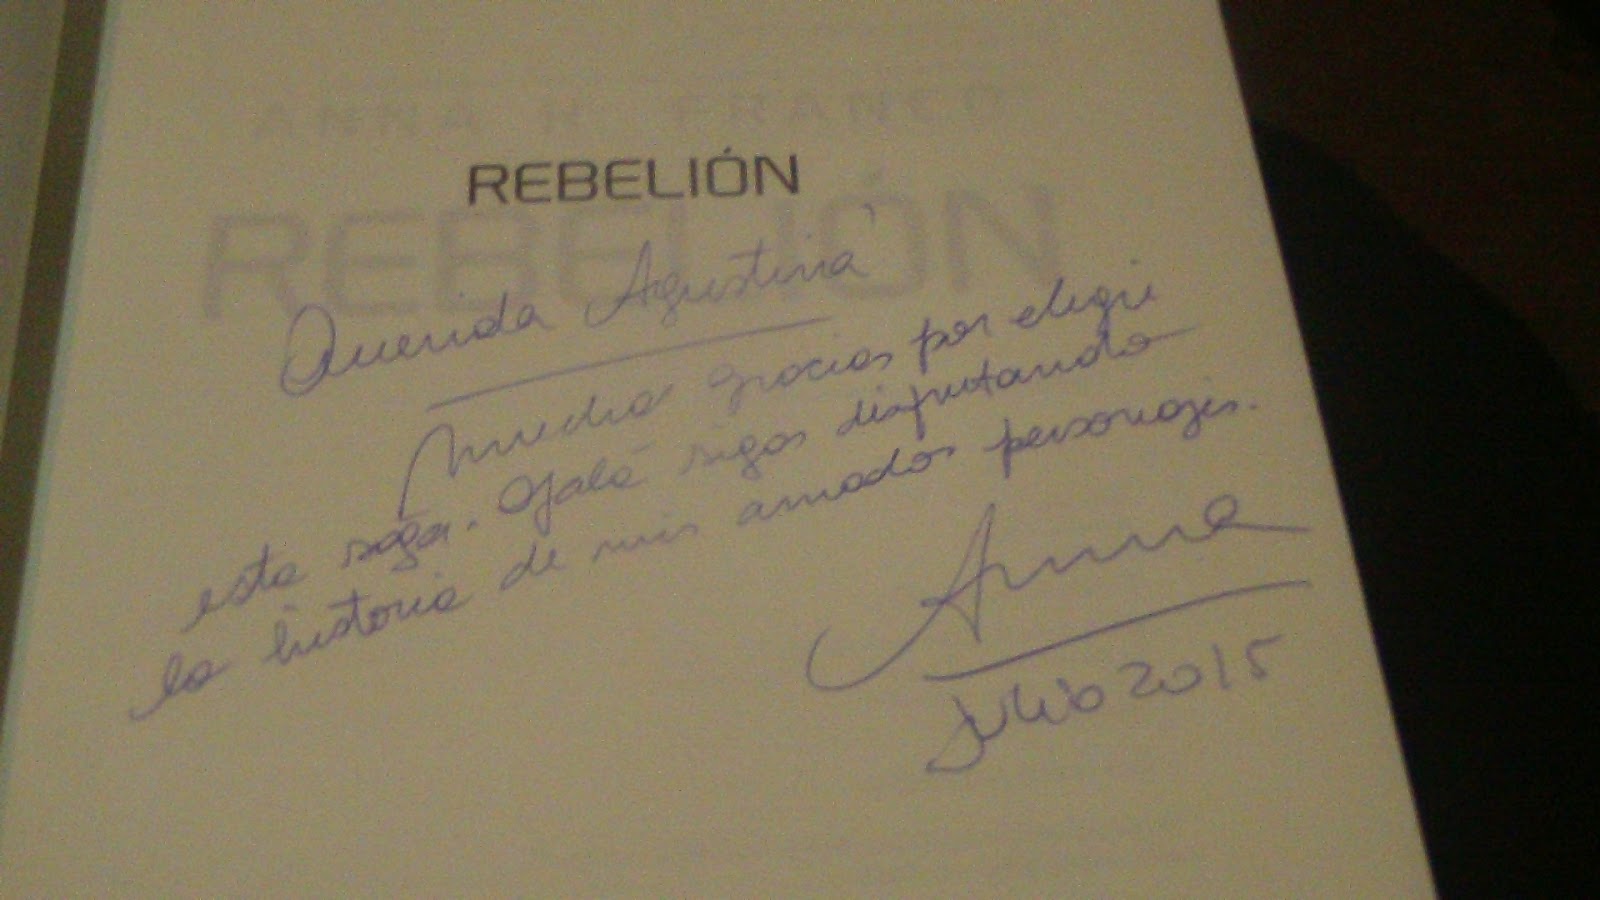 ANNA K. FRANCO
REBELIÓN
REBELIÓN
Querida Agustina
Muchas gracias por elegir
esta saga. Ojalá sigas disfrutando
la historia de mis amados personajes.
Anna
Julio 2015